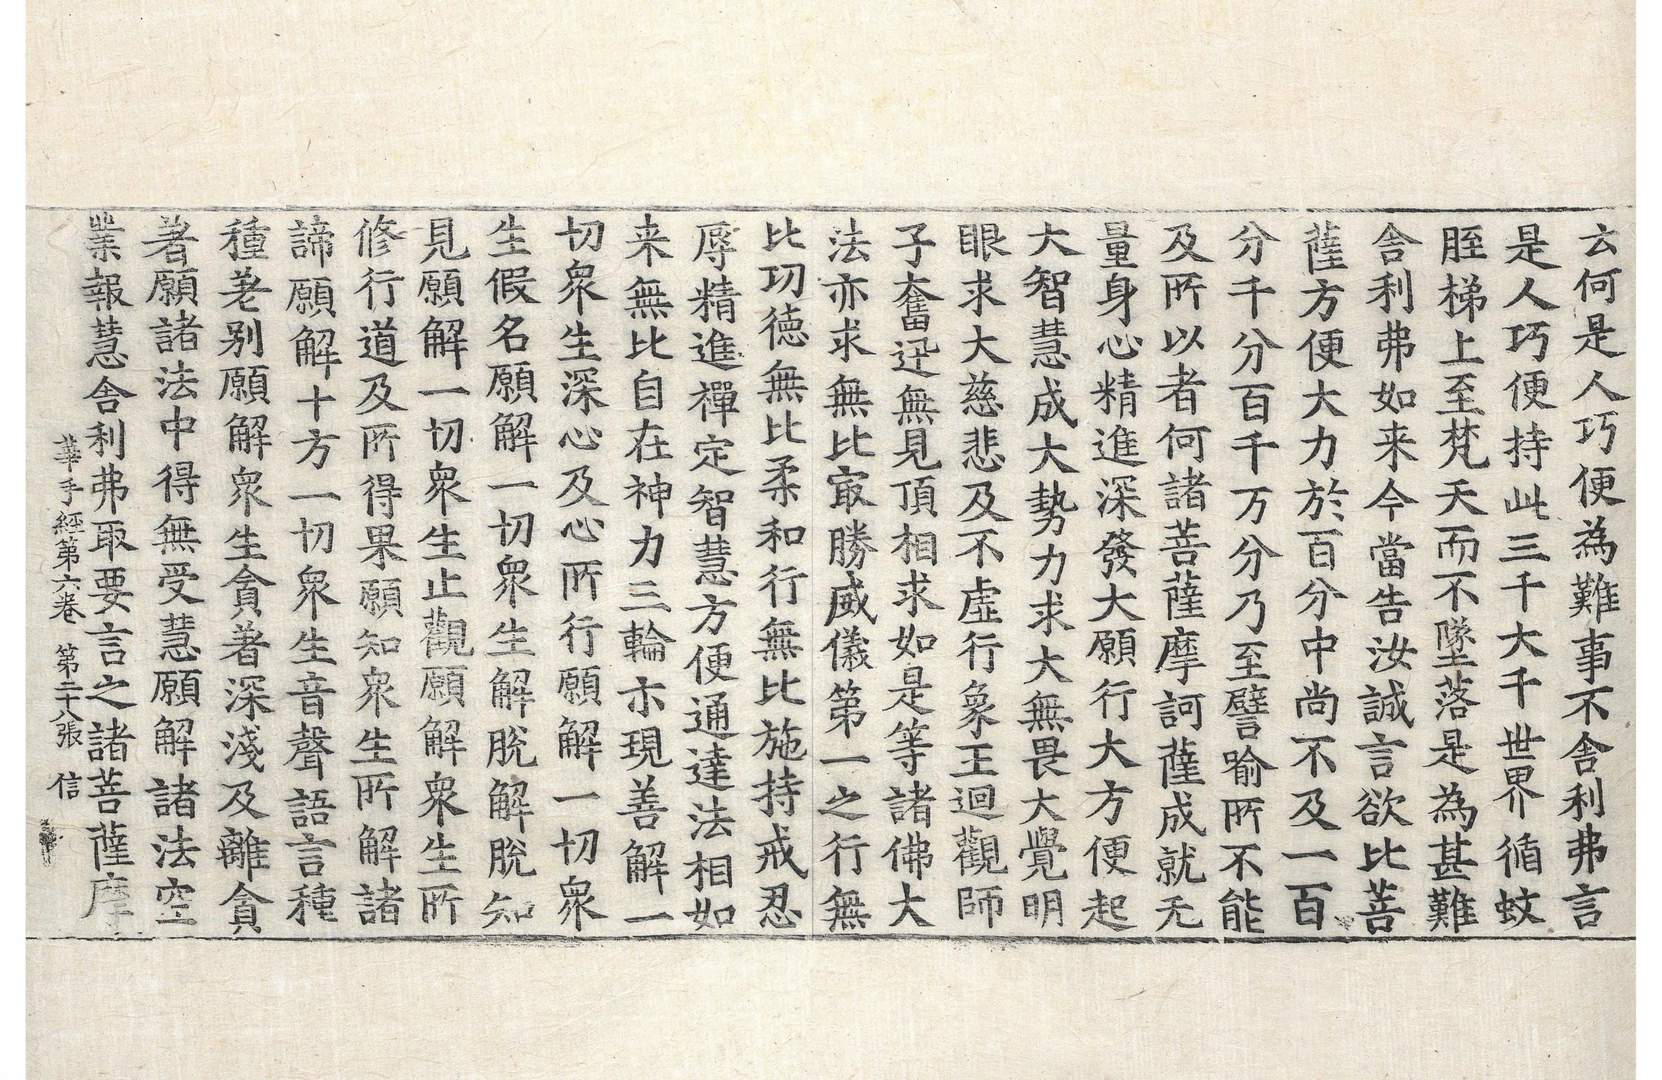 云何是人巧便為難事不舎利弗言
是人巧便持此三千大千世界循蚊
脛梯上至梵天而不墜落是為甚難
舎利弗如来今當告汝誠言欲比菩
薩方便大力於百分中尚不及一百
分千分百千万分乃至譬喻所不能
及所以者何諸菩薩摩訶薩成就无
量身心精進深發大願行大方便起
大智慧成大勢力求大無畏大覺明
眼求大慈悲及不虛行象王迴觀師
子奮迅無見頂相求如是等諸佛大
法亦求無比㝡勝威儀第一之行無
比㓛德無比柔和行無比施持戒忍
辱精進禪定智慧方便通達法相如
来無比自在神力三輪亦現善解一
切衆生深心及心所行願解一切衆
生假名願解一切衆生解脫解脫知
見願解一切衆生止觀願解衆生所
修行道及所得果願知衆生所解諸
諦願解十方一切衆生音聲語言種
種差别願解衆生貪著深淺及離貪
著願諸法中得無受慧願解諸法空
業報慧舎利弗取要言之諸菩薩摩
華手經第六卷　第二十八張　信